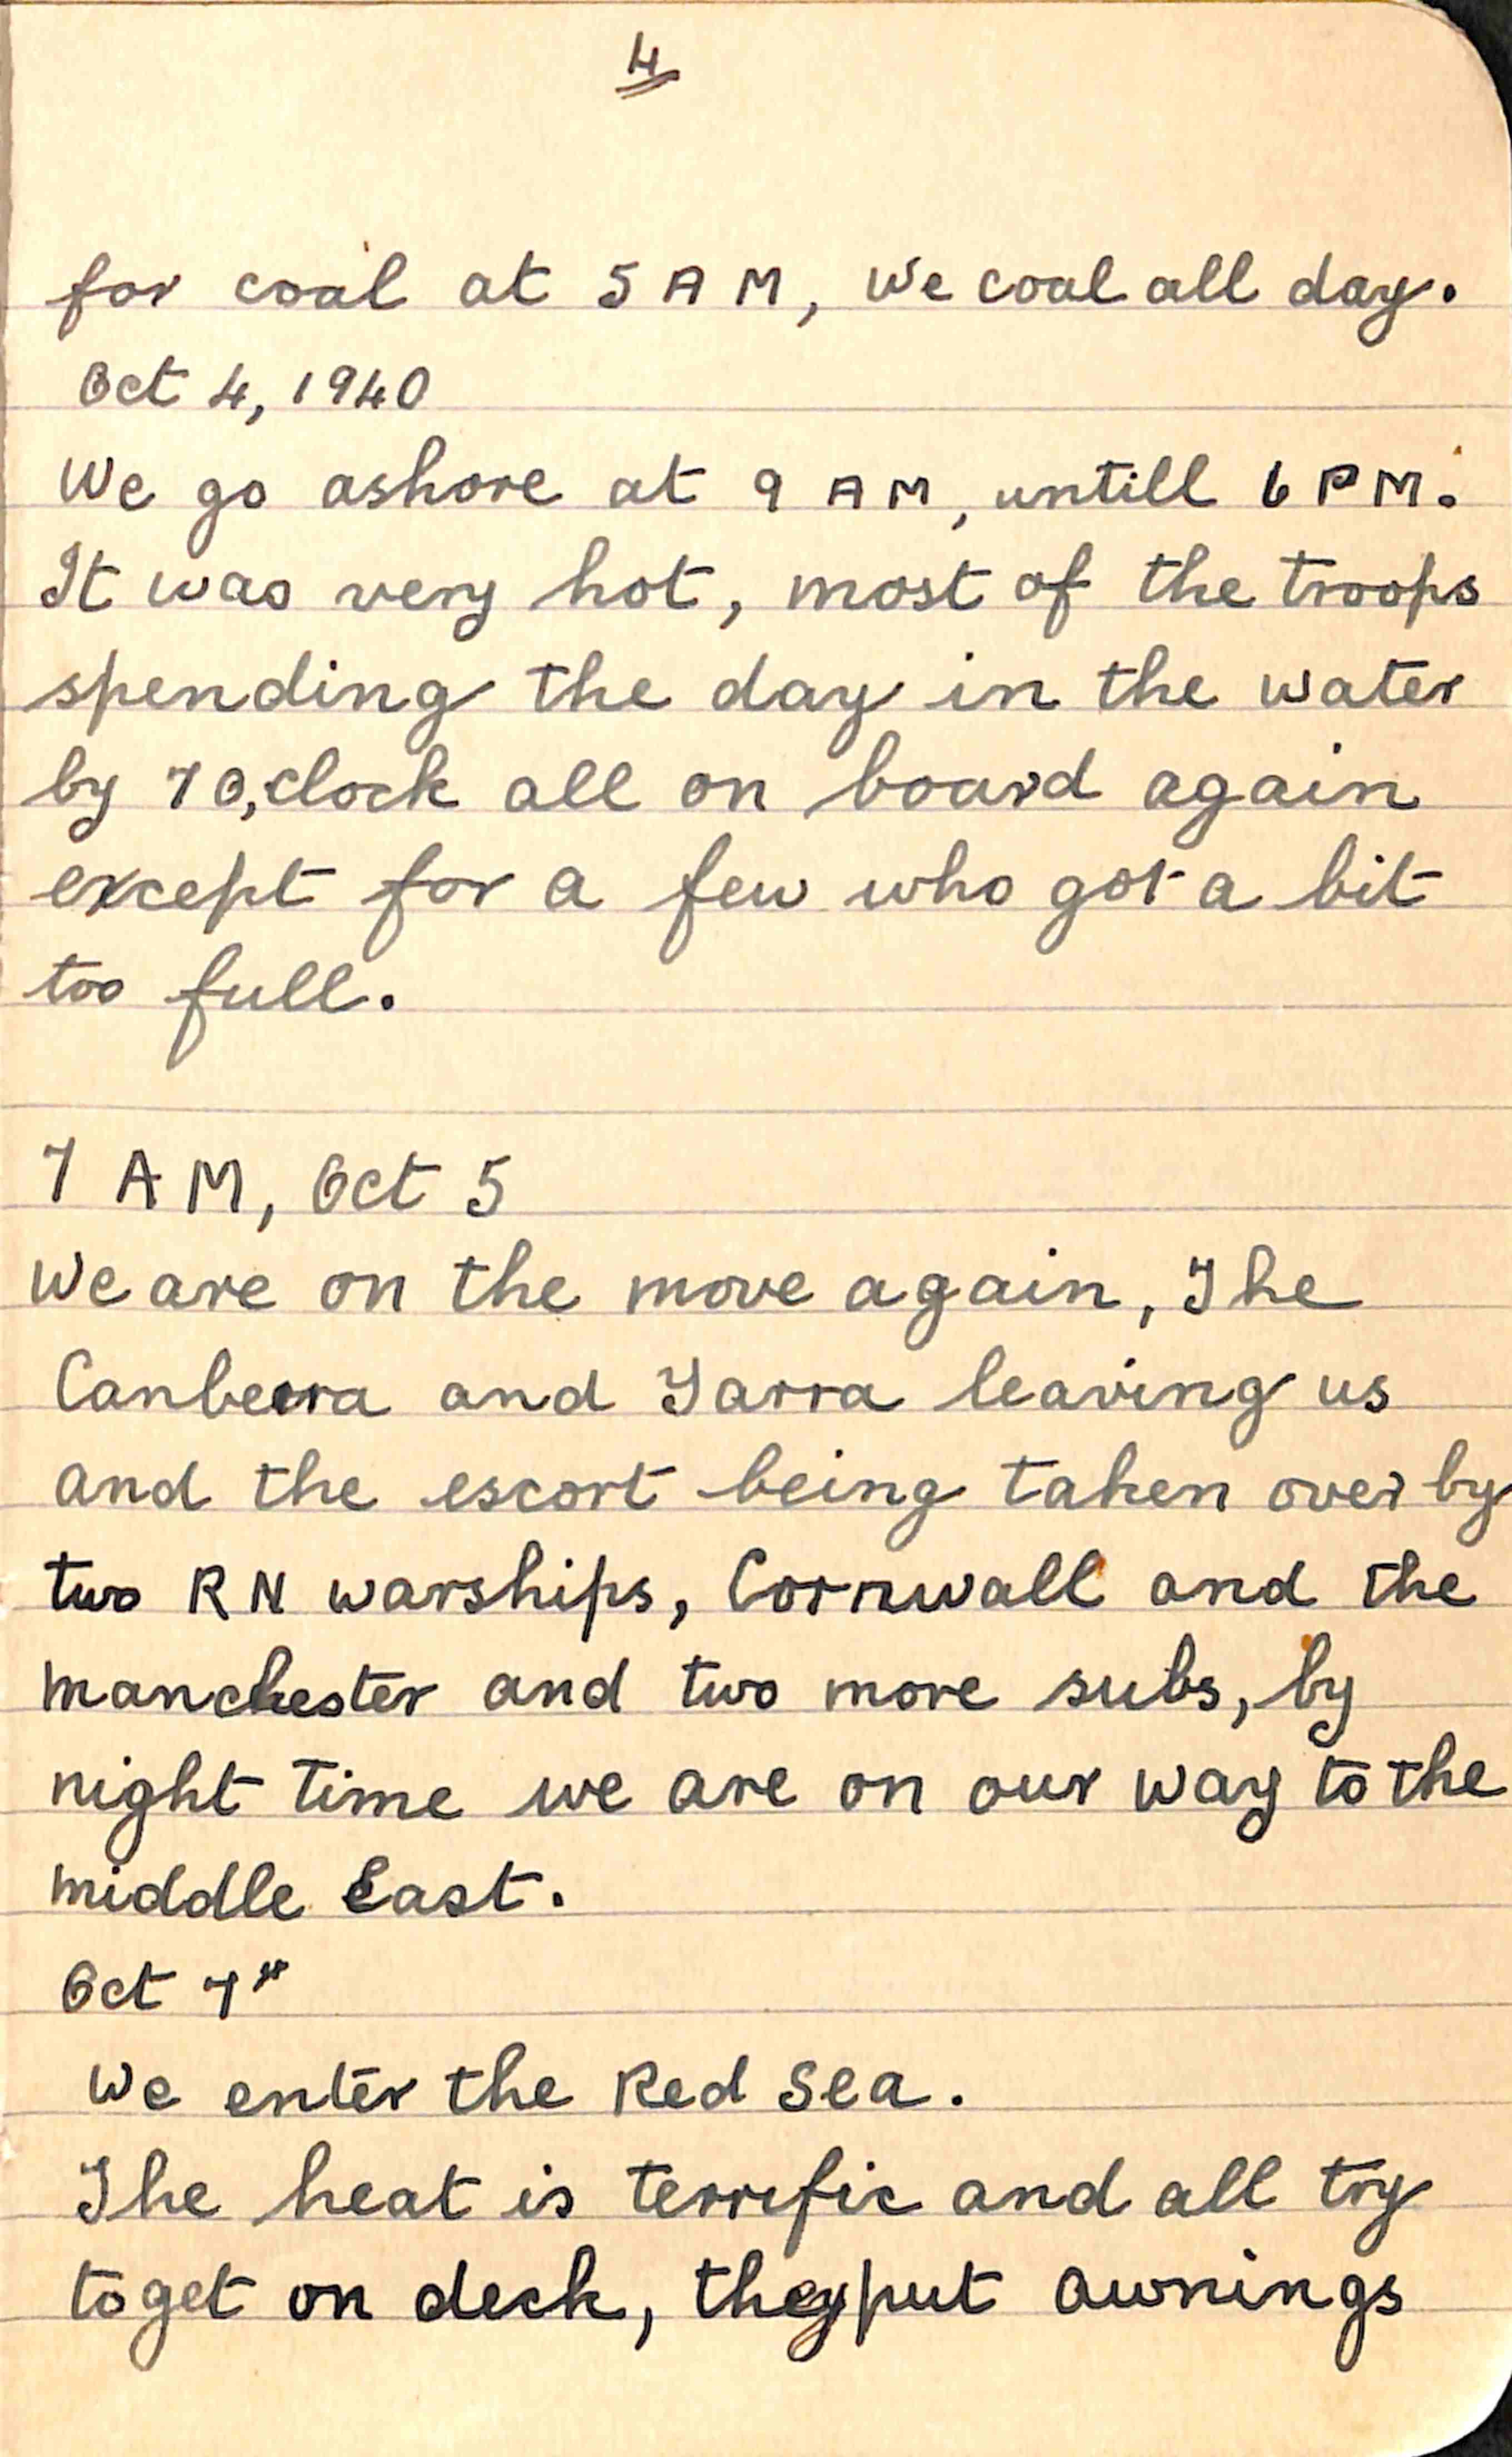 4
for coal at 5 AM, We coal all day.
Oct 4, 1940
We go ashore at 9 AM, untill 6 PM.
It was very hot, most of the troops
spending the day in the water
by 7 O,clock all on board again
except for a few who got a bit
too full.
7 AM, Oct 5
We are on the move again, The
Canberra and Yarra leaving us
and the escort being taken over by
two RN warships, Cornwall and the
Manchester and two more subs, by
night time we are on our way to the
Middle East.
Oct 7th
We enter the Red Sea.
The heat is terrific and all try
to get on deck, they put awnings